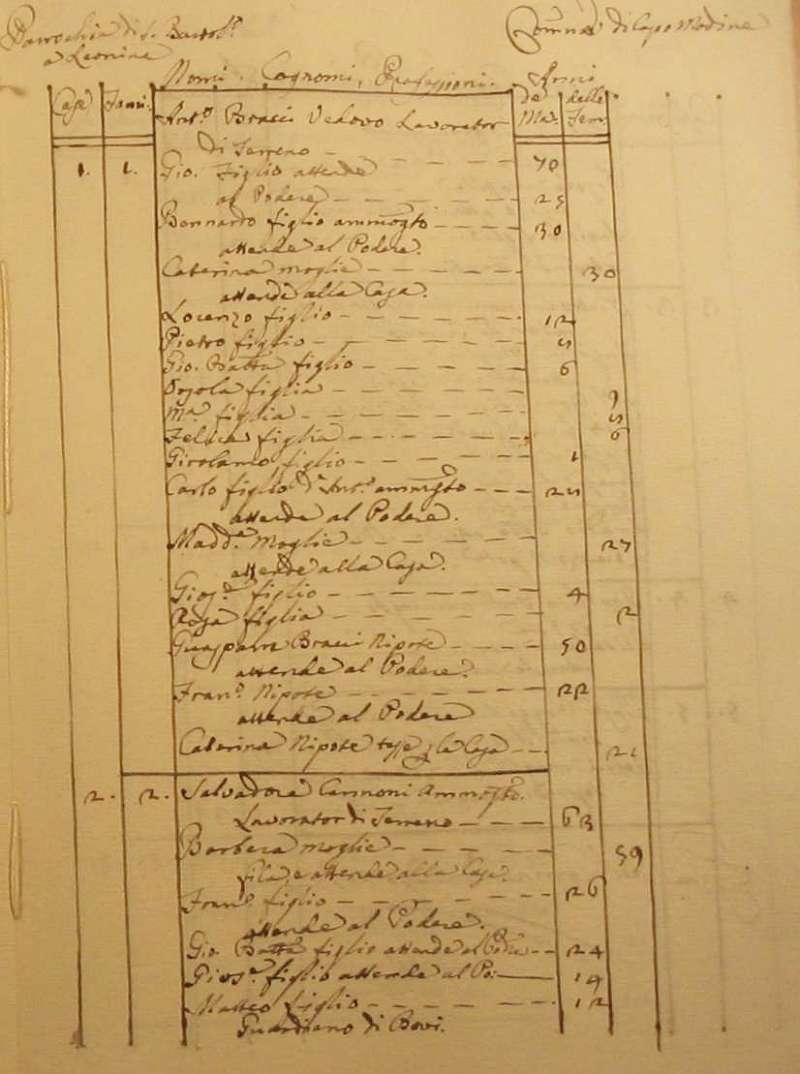 Parrochia di S. Bartol.º
a Leonina
Comun.à di Capo Modine
Nomi, Cognomi, Professioni.
Anni
Case
Fami.
de Mas.
delle Fem.
Ant.º Bracci Vedovo Lavorator
1. 1. di Terreno — 70
Gio. figlio attende
al Podere — 25
Bernardo figlio ammog.to — 30
attende al Podere.
Caterina moglie — 30
attende alla Casa.
Lorenzo figlio — 12
Pietro figlio —
Gio. Batta figlio — 6
Orsola figlia — 9
M.a figlia —
Felice figlia — 6
Girolamo figlio — 1
Carlo figlio d'Ant.º ammog.to —
attende al Podere.
Madd.a Moglie — 27
attende alla Casa.
Gios.e figlio — 4
Rosa figlia — 2
Guasparre Bracci Nipote — 50
attende al Podere.
Fran.º Nipote — 22
attende al Podere
Caterina Nipote tesse p la Casa — 21
2. 2. Salvadore Cannoni Ammog.to
Lavorator di Terreno — 63
Barbera moglie — 59
fila, e attende alla Casa.
Fran.º figlio — 26
attende al Podere.
Gio. Batta figlio attende al Pode — 24
Gios.e figlio attende al Po: — 14
Matteo figlio — 12
Guardiano di Bovi.